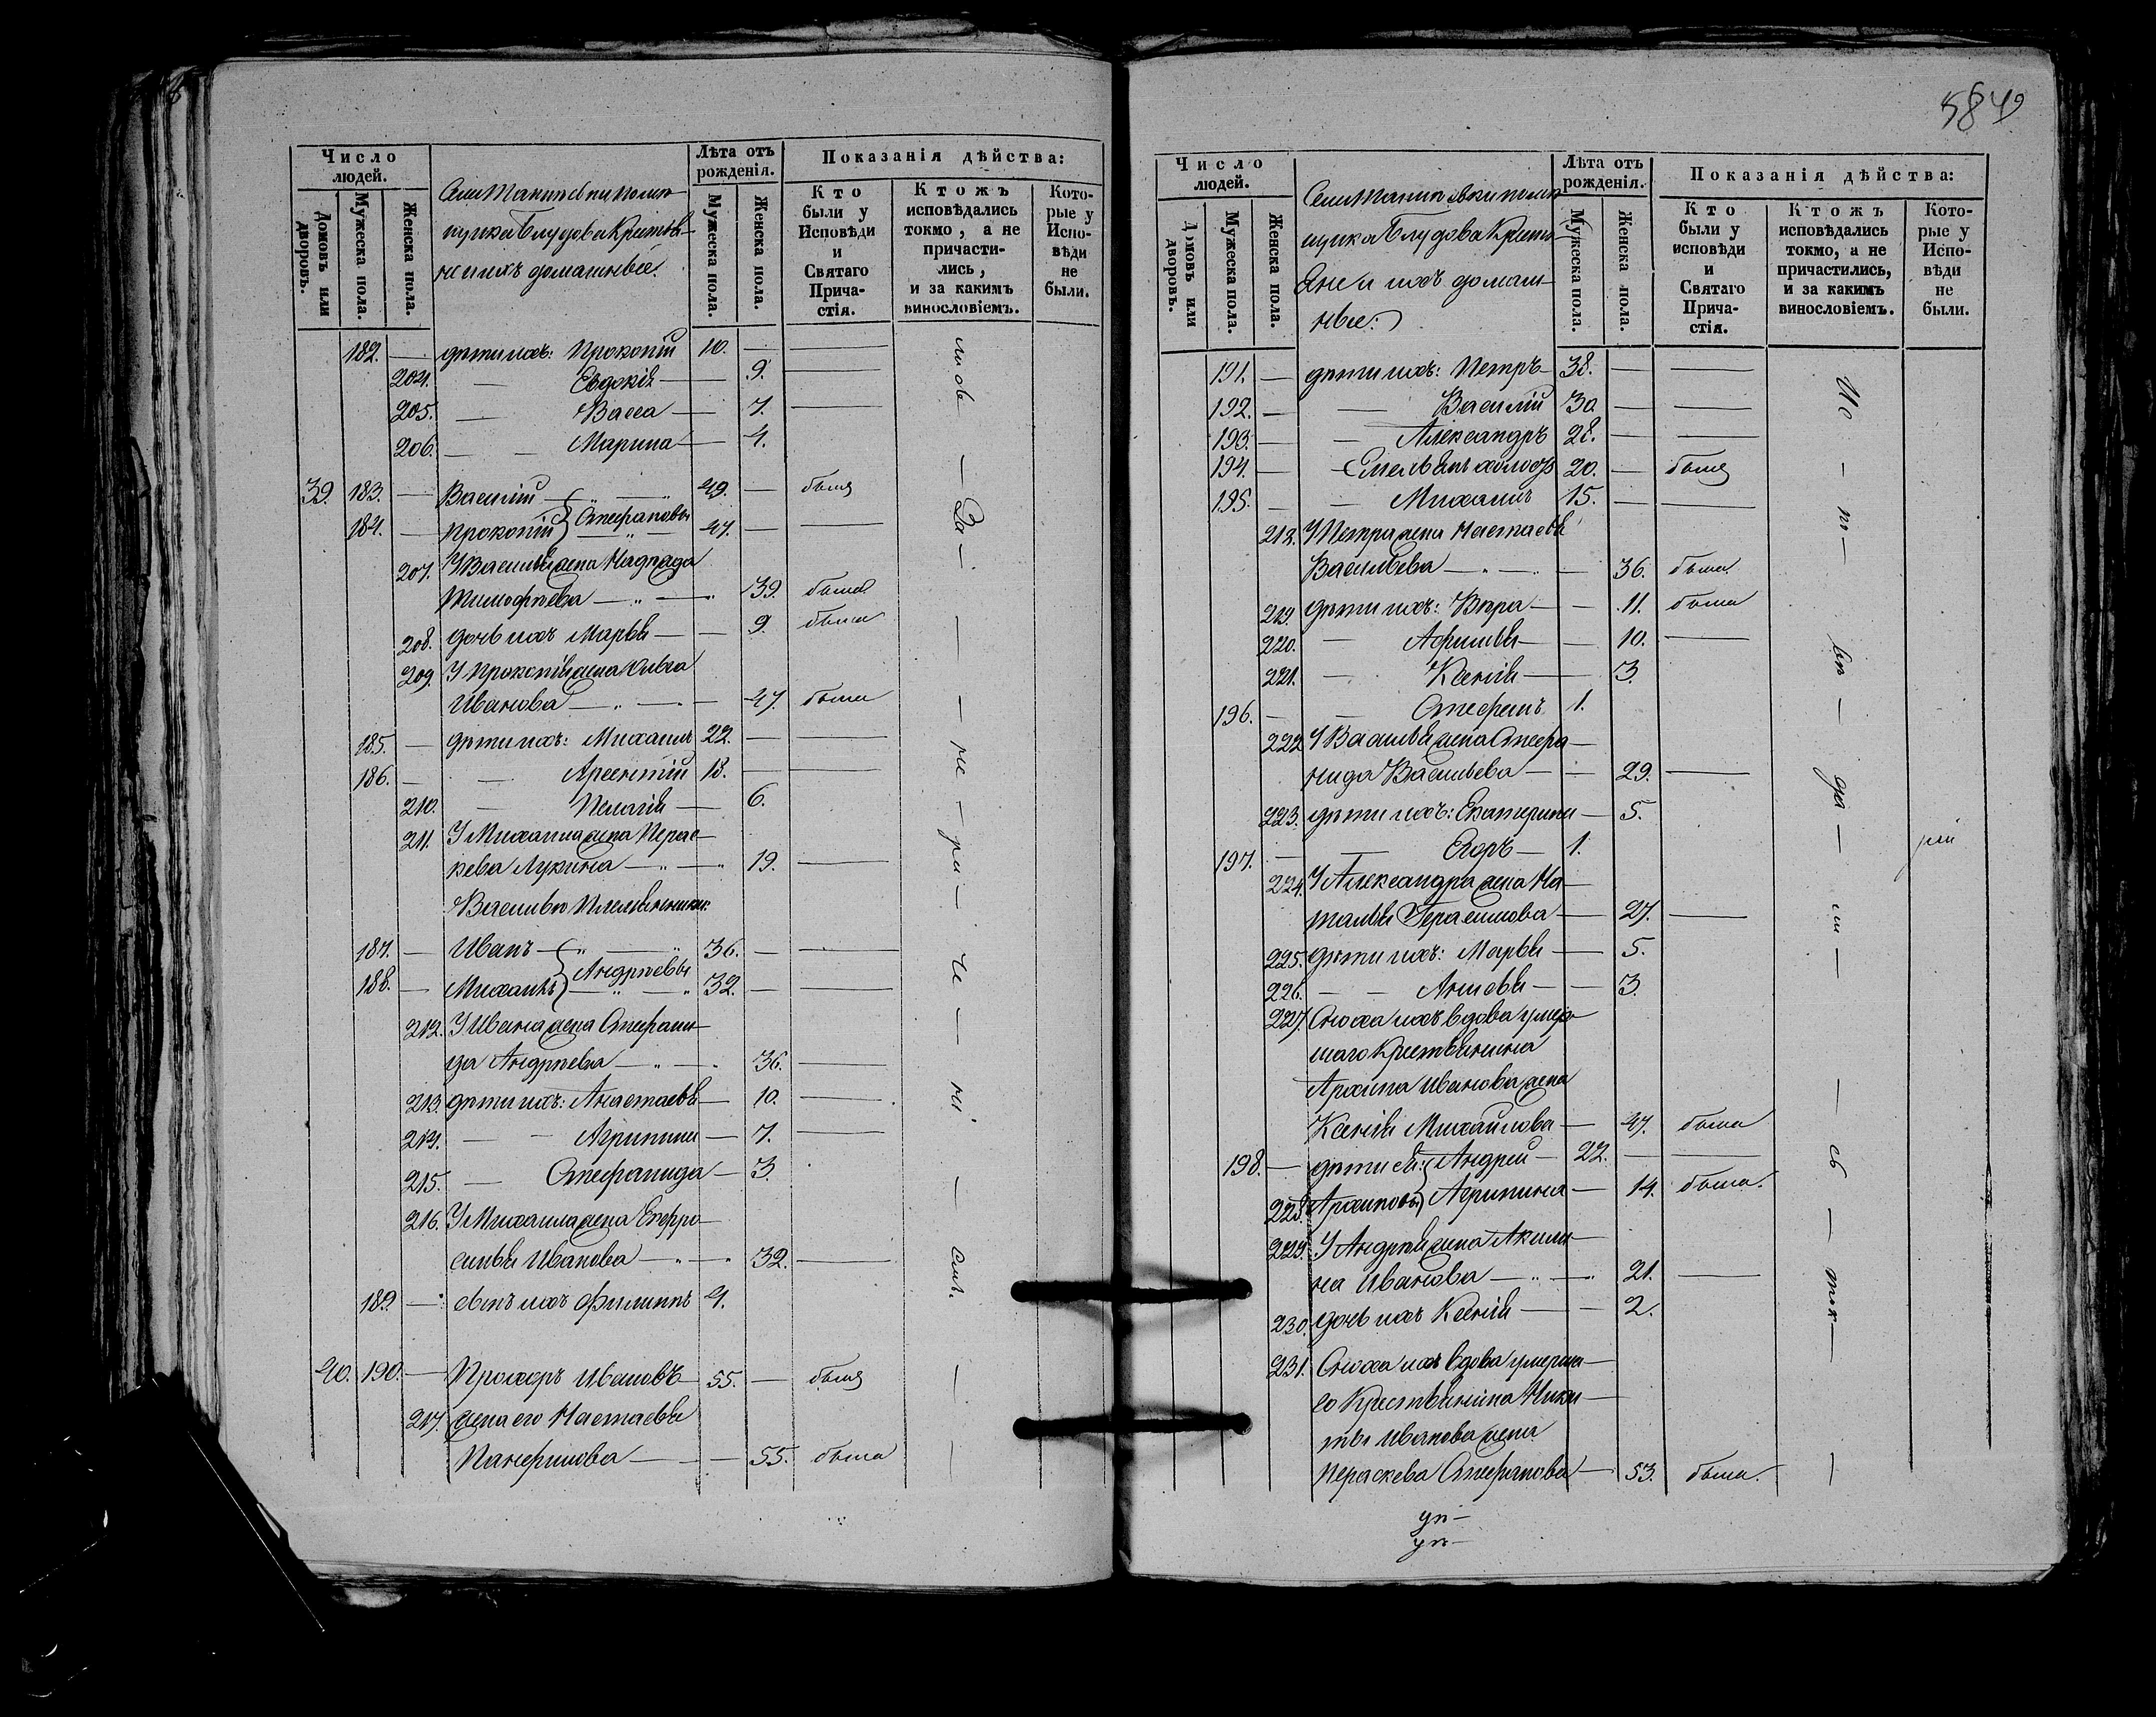 5849
Число людей.
Лѣта отъ рожденія.
Показанія дѣйства:
Домовъ или дворовъ.
Мужеска пола.
Женска пола.
помѣ-
щика Блудова Крестья-
не и ихъ домашнее.
Мужеска пола.
Женска пола.
Кто были у Исповѣди и Святаго Прича-стія.
Ктожъ исповѣдались токмо, а не причасти-лись, и за какимъ винословіемъ.
Кото-рые у Испо-вѣди не были.
182. — дѣти ихъ: Прокопій 10. —
204. — Евдокія — 9.
205. — Васса — 7.
206. — — Марина — 4.
39. 183. — Василій — 49. — былъ
Стефановы
184. — Прокопій — 47. —
207. У Василія жена
Тимофѣева — 39. была
208. дочь ихъ Марья — 9. была
209. У Прокопія жена Ольга
Иванова — 47. была
185. — дѣти ихъ: Михаилъ 22. —
186. — — Арсентій 18. —
210. — Пелагія — 6.
211. У Михаила жена Парас-
кева Лукина — 19.
Василью племянники:
187. — Иванъ — 36. —
Андрѣевы
188. — Михаилъ — 32. —
212. У Ивана жена Стефани-
да Андрѣева — 36.
213. дѣти ихъ: Анастасья — 10.
214. — — Агрипина — 7.
215. — Стефанида — 3.
216. У Михаила жена Ефро-
синья Иванова — 32.
189. — сынъ ихъ Филиппъ 4.
40. 190. — Прохоръ Ивановъ 55. — былъ
217. жена его Настасья
Панфилова — 55. была
Число людей.
Лѣта отъ рожденія.
Показанія дѣйства:
Домовъ или дворовъ.
Мужеска пола.
Женска пола.
помѣ-
щика Блудова Кресть-
яне и ихъ домаш-
нѣе:
Мужеска пола.
Женска пола.
Кто были у исповѣди и Святаго Прича-стія.
Ктожъ исповѣдались токмо, а не причастились, и за какимъ винословіемъ.
Кото-рые у Испо-вѣди не были.
191. — дѣти ихъ: Петръ 38. —
192. — — Василій 30. —
193. — — Александръ 28. —
194. — Емельянъ холостъ 20. — былъ
195. — — Михаилъ 15. —
218. У Петра жена Настасья
Васильева — 36. была
219. дѣти ихъ: Вѣра — 11. была
220. — Афимья — 10.
221. — Ксенія — 3.
196. — — Стефанъ 1.
222. У Василья жена Стефа-
нида Васильева — 29.
223. дѣти ихъ: Екатерина — 5.
197. — — Егоръ — 1.
224. У Александра жена На-
талья Герасимова — 27.
225. дѣти ихъ: Марья — 5.
226. — — — 3.
227. Сноха ихъ вдова умер-
шаго Крестьянина
Архипа Иванова жена
Ксенія Михайлова — 47. была
198. — дѣти ея: Андрей — 22. —
228. Архиповы Агрипина — 14. была.
229. У Андрея жена Акили-
на Иванова — 21.
230. дочь ихъ Ксенія — 2.
231. Сноха ихъ вдова умерша-
го Крестьянина Ники-
ты Иванова жена
Параскева Стефанова — 53. была.